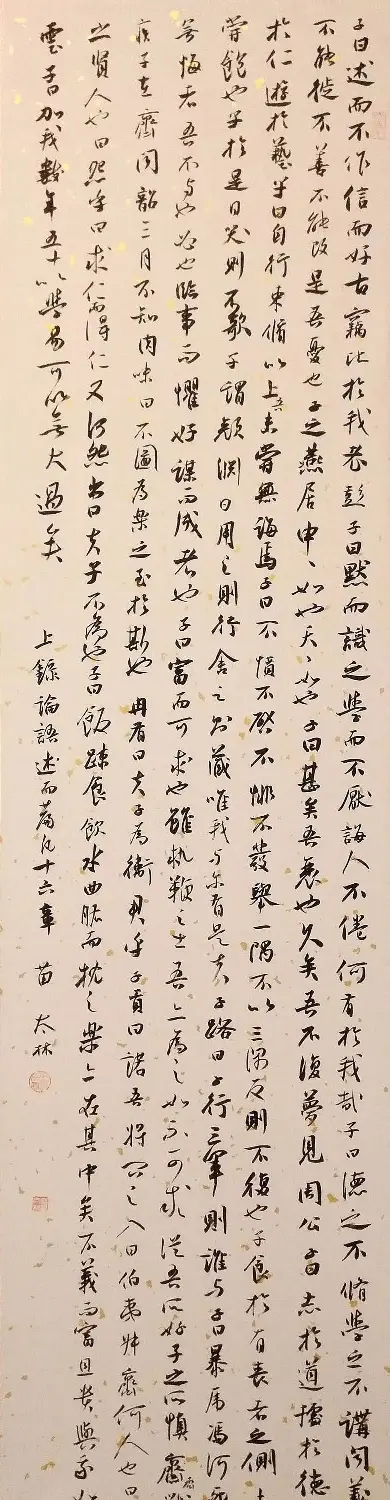 子曰述而不作信而好古竊比於我老彭子曰默而識之學而不厭誨人不倦何有於我哉子曰德之不脩學之不講聞義
不能徙不善不能改是吾憂也子之燕居申、如也夭、如也子曰甚矣吾衰也久矣吾不復夢見周公子曰志於道據於德
於仁遊於藝子曰自行束脩以上吾未嘗無誨焉子曰不憤不啓不悱不發舉一隅不以三隅反則不復也子食於有喪者之側
嘗飽也子於是日哭則不歌子謂顏淵曰用之則行舍之則藏唯我与尔有是夫子路曰子行三軍則誰与子曰暴虎馮河死
無悔者吾不与也必也臨事而懼好謀而成者也子曰富而可求也雖執鞭之士吾亦為之如不可求從吾所好子之所慎齋戰
疾子在齊聞韶三月不知肉味曰不圖為樂之至於斯也冉有曰夫子為衛君乎子貢曰諾吾將問之入曰伯夷叔齊何人也曰
之賢人也曰怨乎曰求仁而得仁又何怨出曰夫子不為也子曰飯疏食飲水曲肱而枕之樂亦在其中矣不義而富且貴與我如
雲子曰加我數年五十以學易可以無大過矣
上錄論語述而篇凡十六章 苗太林